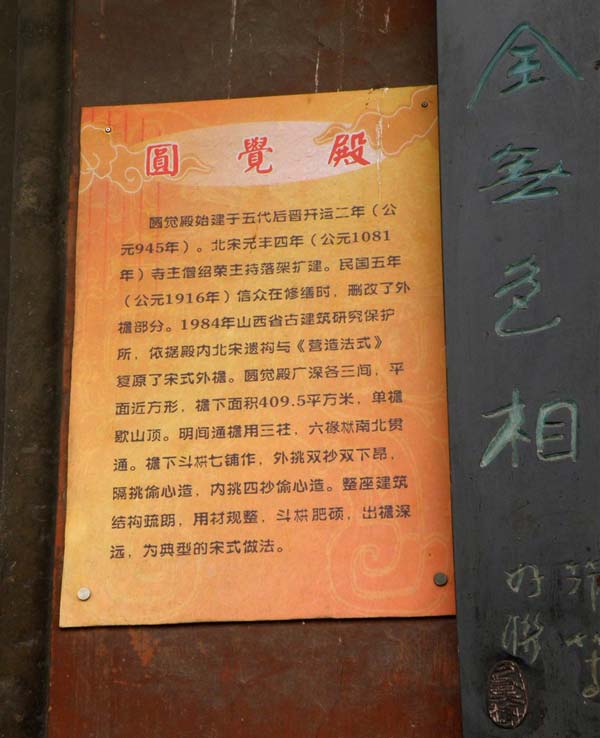 圓覺殿
圆觉殿始建于五代后晋开运二年（公
元945年）。北宋元丰四年（公元1081
年）寺主僧绍荣主持落架扩建。民国五年
（公元1916年）信众在修缮时，删改了外
檐部分。1984年山西省古建筑研究保护
所，依据殿内北宋遗构与《营造法式》
复原了宋式外檐。圆觉殿广深各三间，平
面近方形，檐下面积409.5平方米，单檐
歇山顶。明间通檐用三柱，六椽栿南北贯
通。檐下斗栱七铺作，外挑双抄双下昂，
隔挑偷心造，内挑四抄偷心造。整座建筑
结构疏朗，用材规整，斗栱肥硕，出檐深
远，为典型的宋式做法。
全無色相